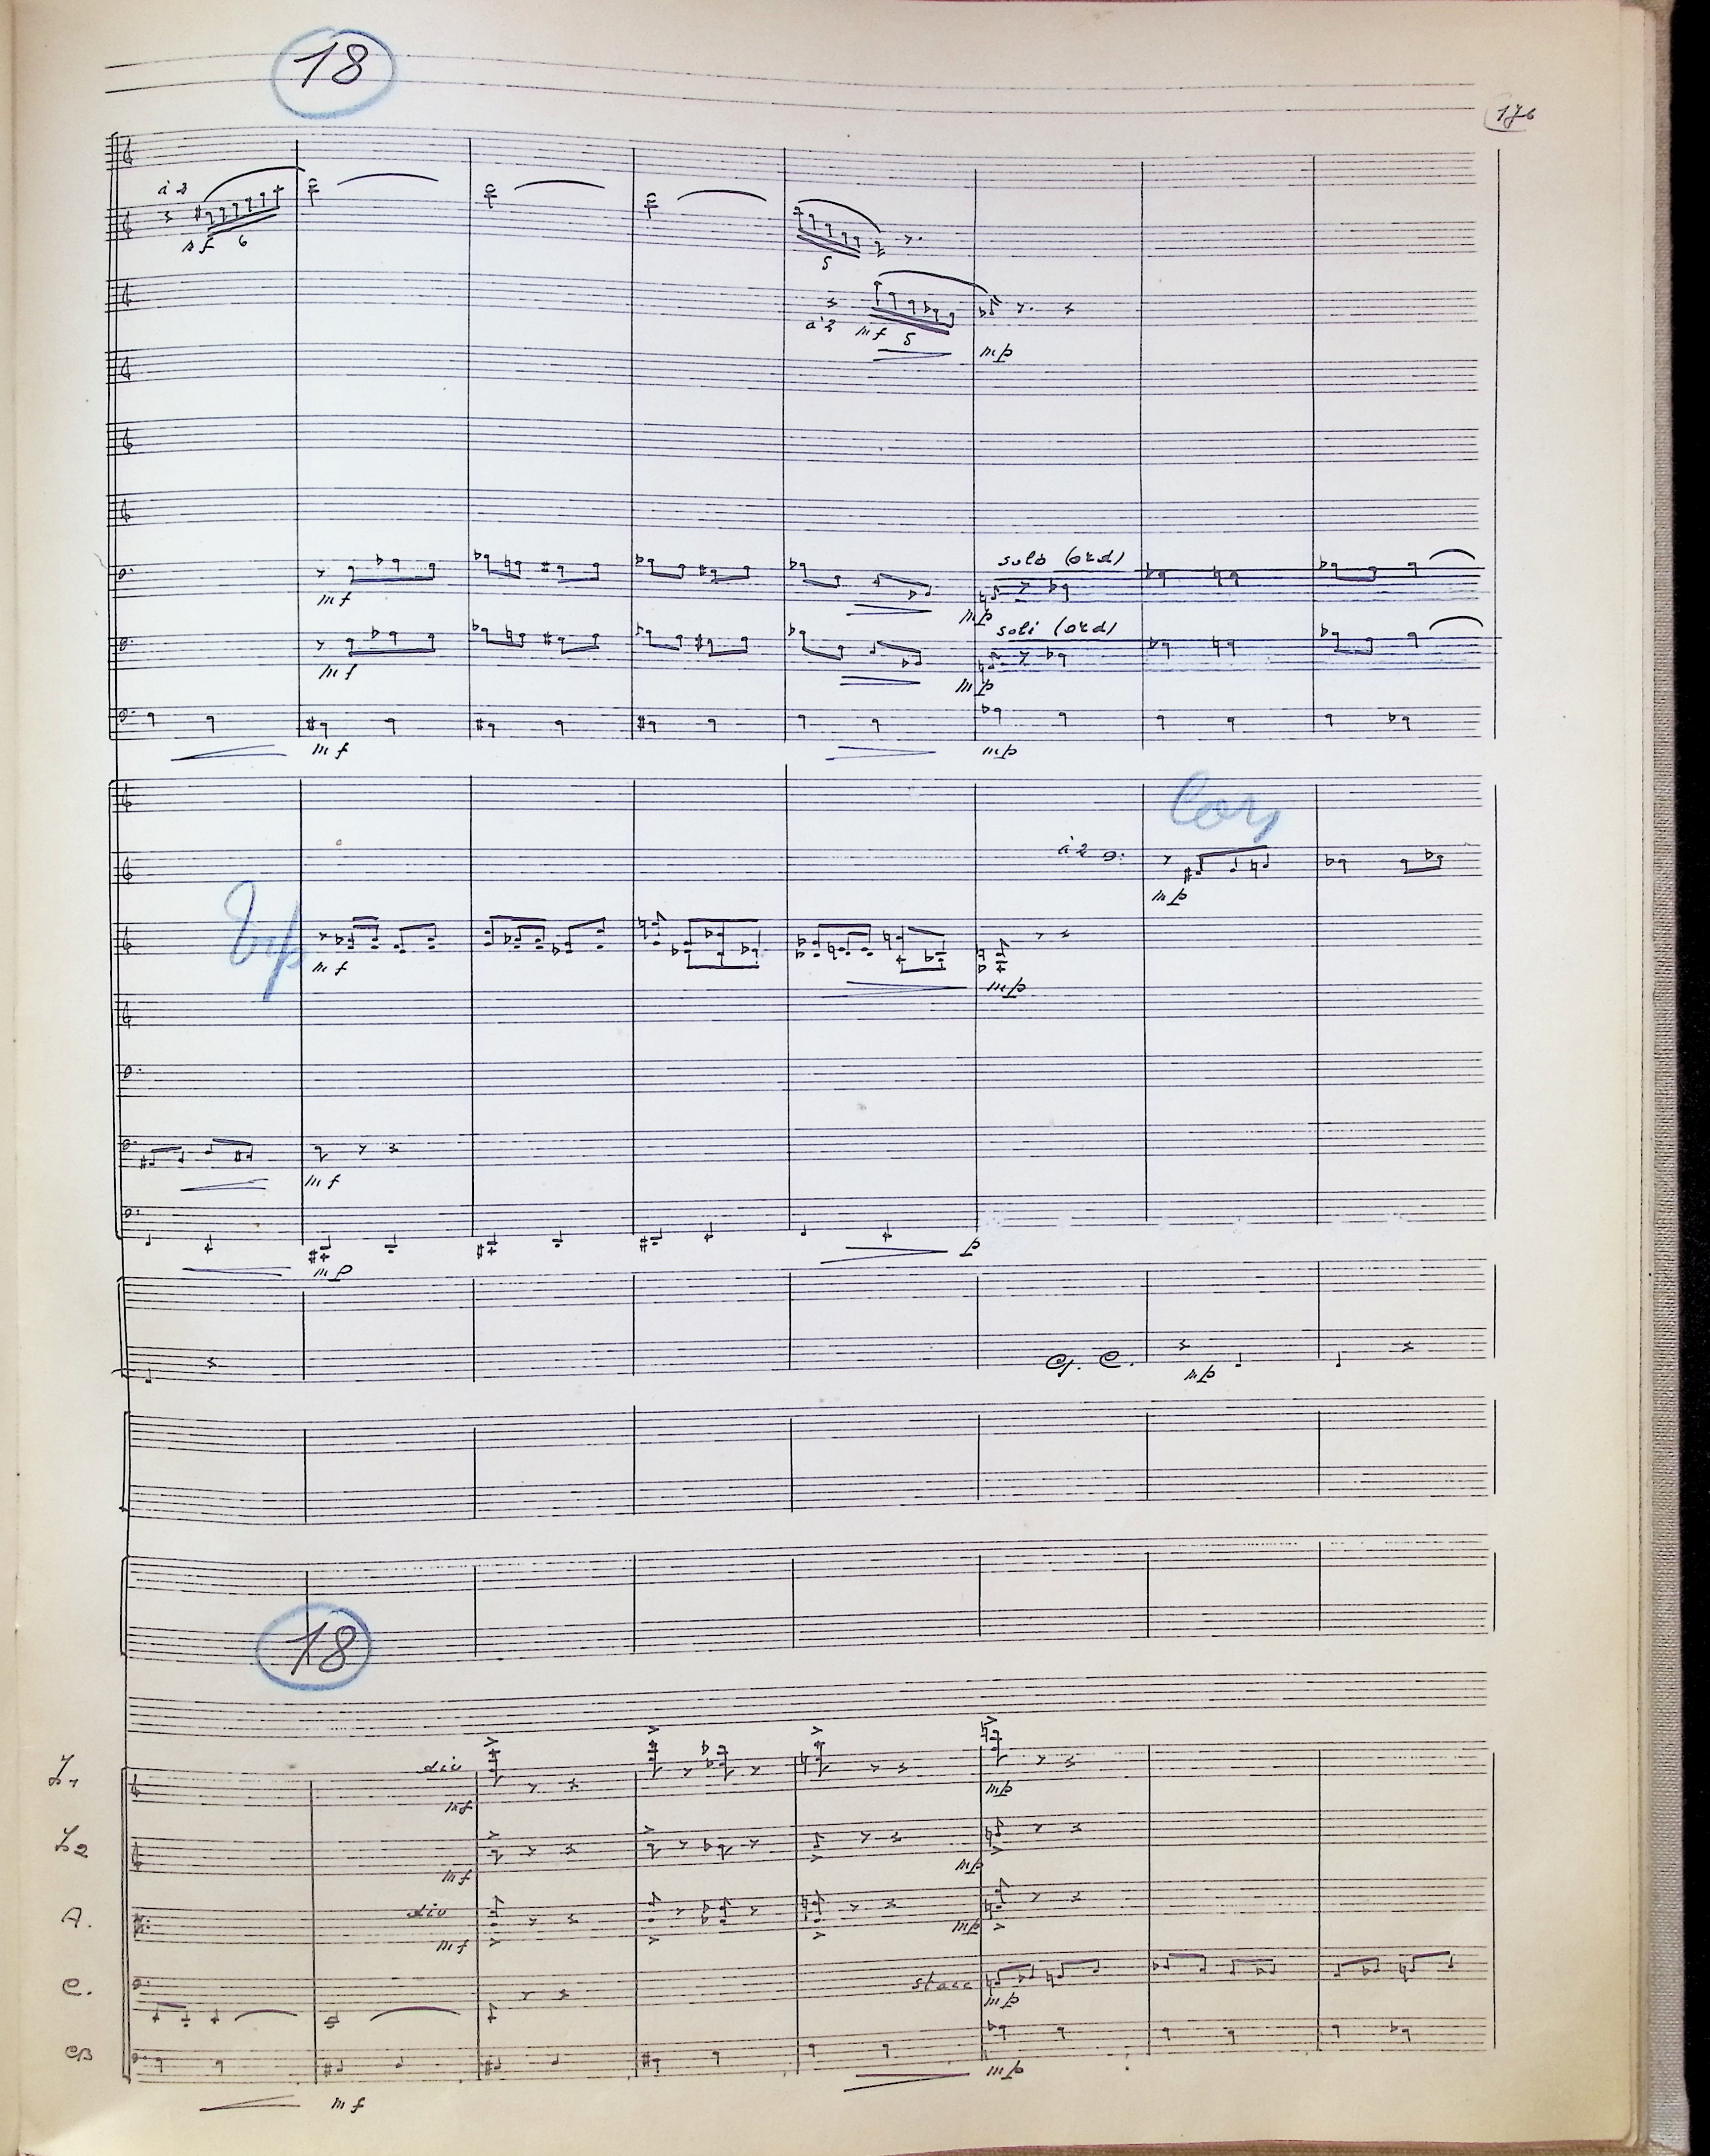 18
176
à 2
sf 6
5
à 2 mf 5
mp
solo (ord)
mf
mp
soli (ord)
mf
mp
mf
mp
Cor,
à 2
mp
Trp
mf
mp
mf
mp
p
G. C.
mp
18
div
mf
mp
mf
mp
A.
div
mf
mp
C.
stacc
mp
CB
mf
mp